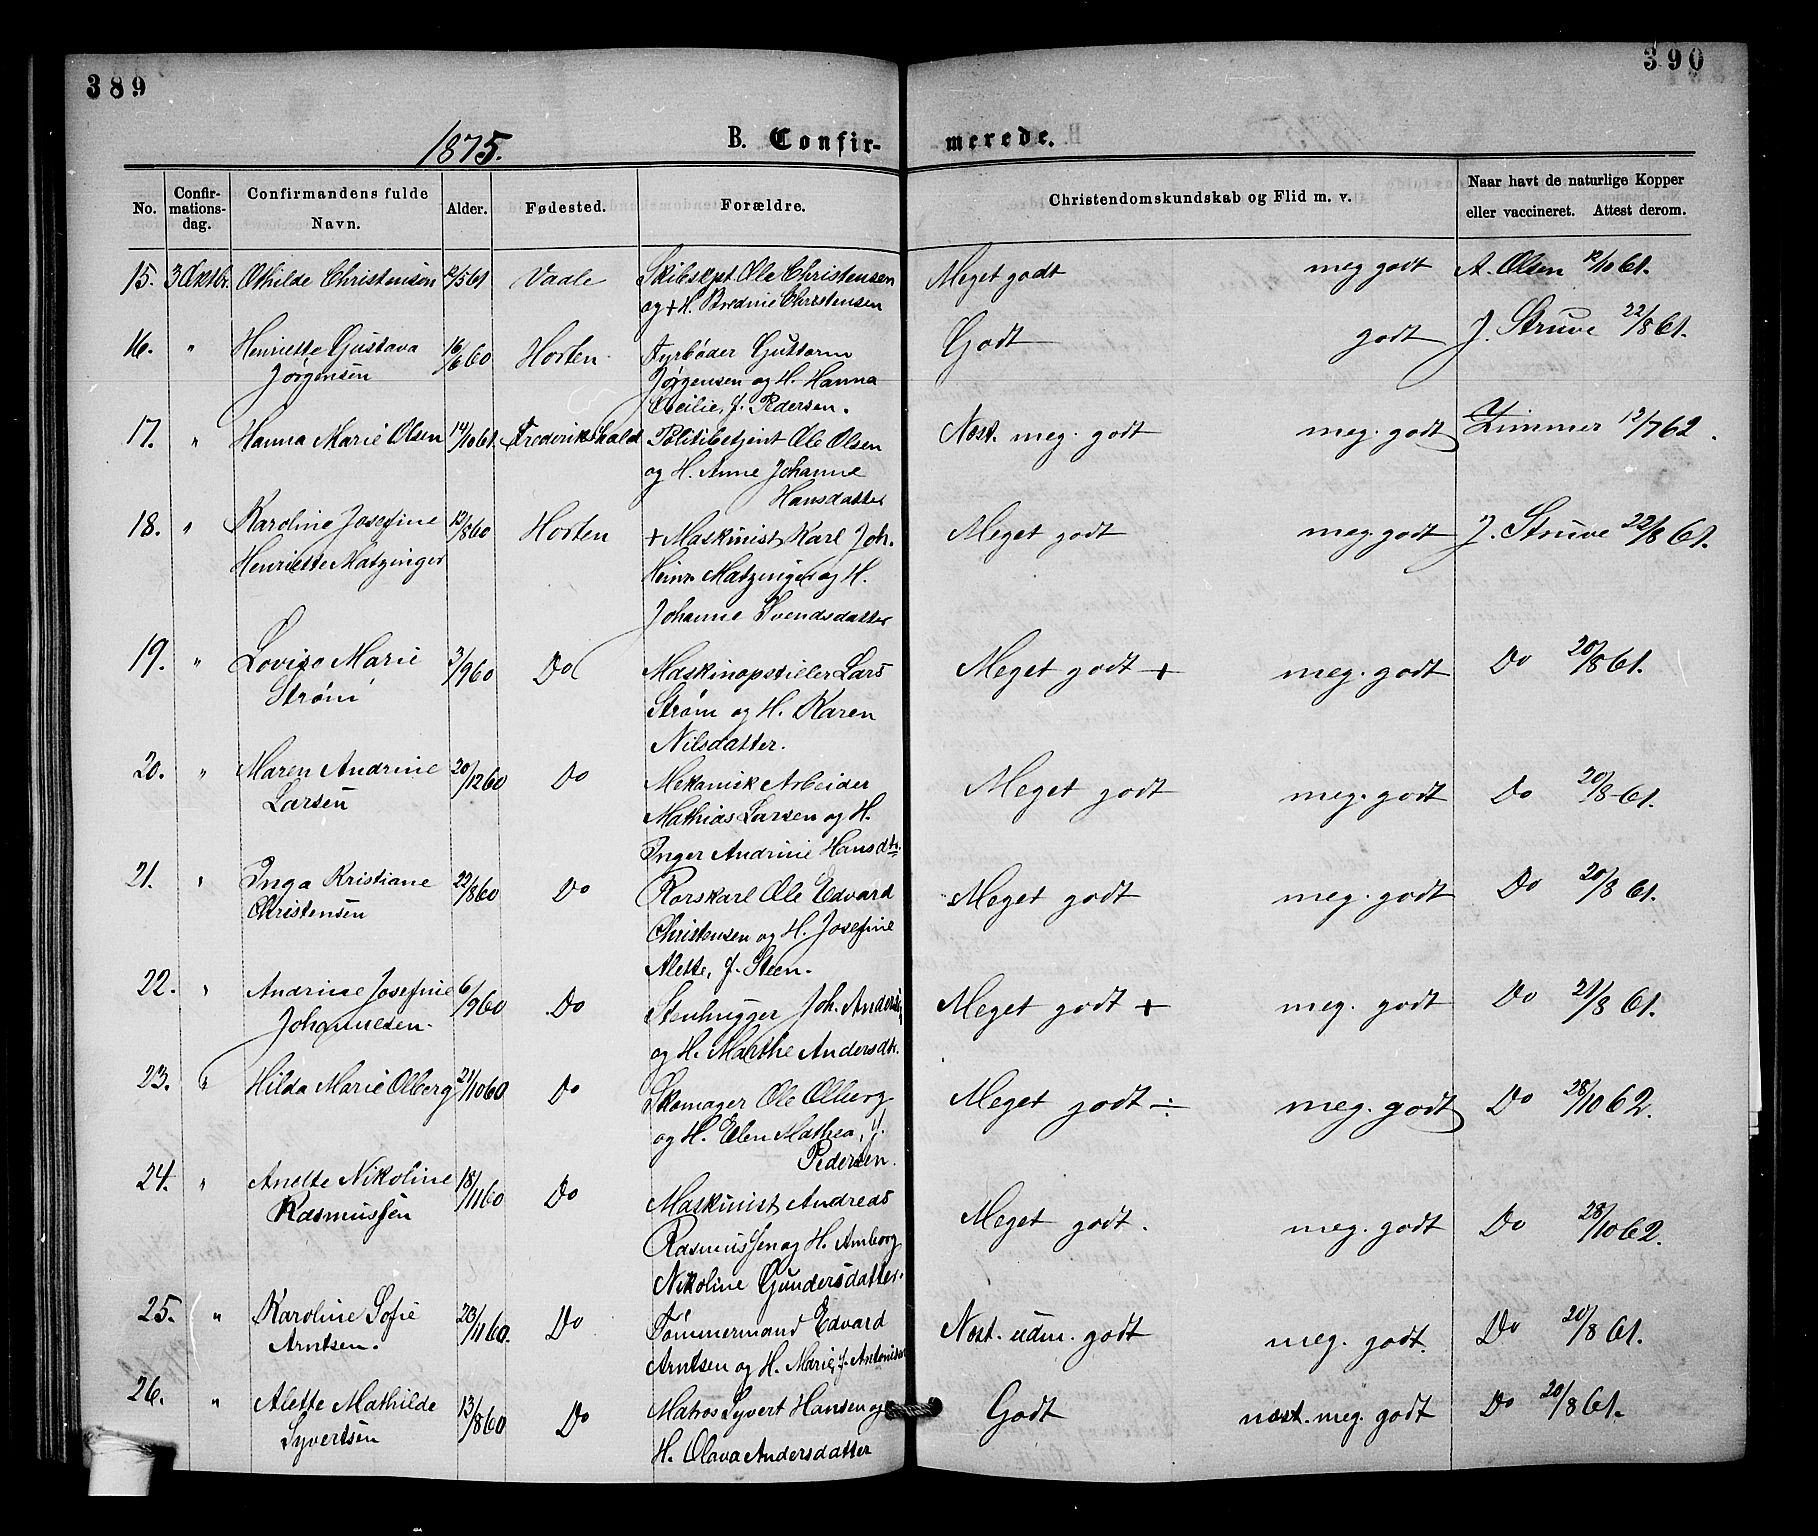 389
390
1875.
B. Confir-
merede.
No.
Confir-
mations-
dag.
Confirmandens fulde
Navn.
Alder.
Fødested.
Forældre.
Christendomskundskab og Flid m. v.
Naar havt de naturlige Kopper
eller vaccineret. Attest derom.
15. 3 Oktbr. Othilde Christensen 12/5 61 Vaale Skibskpt. Ole Christensen Meget godt meg godt A. Olsen 12/10 61.
og + H. Bredine Christensen
16. " Henriette Gustava 16/6 60 Horten Fyrbøder Guttorm Godt godt J. Struve 22/8 61.
Jørgensen Jørgensen og H. Hanna
Cecilie, f. Pedersen.
17. " Hanna Marie Olsen 14/10 61. Frederikshald Politibetjent Ole Olsen Næst. meg. godt meg. godt Zimmer 12/7 62.
og H. Anne Johanne
Hansdatter
18. " Karoline Josefine 13/8 60 Horten + Maskinist Karl Joh. Meget godt meg. godt J. Struve 22/8 61.
Henriette Matzinger Heinr. Matzinger og H.
Johanne Svendsdatter
19. " Lovise Marie 3/9 60 Do Maskinopstiller Lars Meget godt + meg. godt Do 20/8 61.
Strøm Strøm og H. Karen
Nilsdatter.
20. " Maren Andrine 20/12 60 Do Mekanisk Arbeider Meget godt meg. godt Do 20/8 61.
Larsen Mathias Larsen og H.
Inger Andrine Hansdtr.
21. " Inga Kristiane 22/8 60 Do Rorskarl Ole Edvard Meget godt meg. godt Do 20/8 61.
Christensen Christensen og H. Josefine
Alette, f. Steen.
22. " Andrine Josefine 6/9 60 Do Stenhugger Joh. Anders. Meget godt + meg. godt Do 21/8 61.
Johannesen. og H. Marthe Andersdtr.
23. " Hilda Marie Olberg 21/10 60 Do Skomager Ole Olberg Meget godt ÷ meg. godt Do 28/10 62.
og H. Elen Mathea, f.
Pedersen.
24. " Anette Nikoline 18/11 60 Do Maskinist Andreas Meget godt. meg. godt Do 28/10 62.
Rasmussen Rasmussen og H. Amborg
Nikoline Gundersdatter.
25. " Karoline Sofie 23/11 60. Do Tømmermand Edvard Næst. udm. godt meg. godt. Do 20/8 61.
Arntsen. Arntsen og H. Marie, f. Antonisen
26. " Alette Mathilde 13/8 60 Do Matros Syvert Hansen og Godt næst. meg. godt Do 20/8 61.
Syvertsen H. Olava Andersdatter